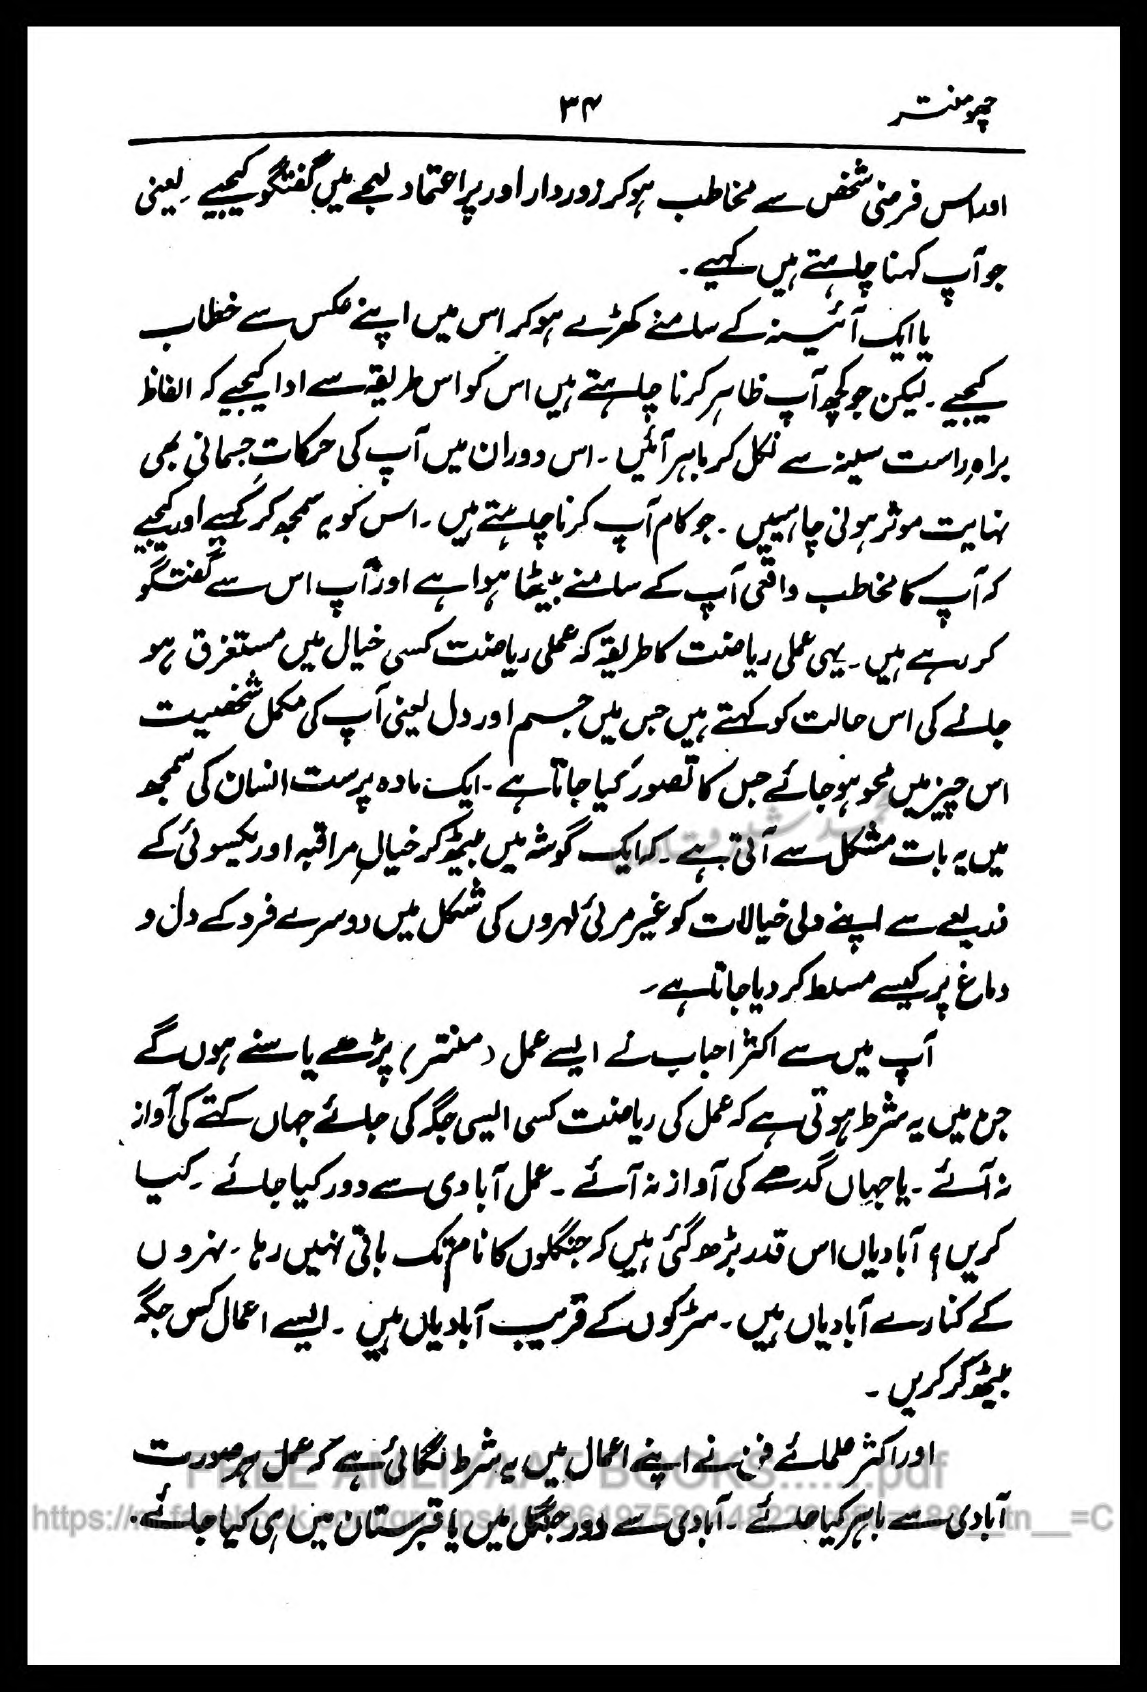 چھومنتر
۳۴
اور اس فرضی شخص سے مخاطب ہو کر زوردار اور پر اعتماد لہجے میں گفتگو کیجیے۔ یعنی
جو آپ کہنا چاہتے ہیں کہیے۔
یا ایک آئینہ کے سامنے کھڑے ہو کر اس میں اپنے عکس سے خطاب
کیجیے۔ لیکن جو کچھ آپ ظاہر کرنا چاہتے ہیں اس کو اس طریقہ سے ادا کیجیے کہ الفاظ
براہِ راست سینہ سے نکل کر باہر آئیں۔ اس دوران میں آپ کی حرکاتِ جسمانی بھی
نہایت موثر ہونی چاہییں۔ جو کام آپ کرنا چاہتے ہیں۔ اس کو یہ سمجھ کر کہیے اور کیجیے
کہ آپ کا مخاطب واقعی آپ کے سامنے بیٹھا ہوا ہے اور آپ اس سے گفتگو
کر رہے ہیں۔ یہی عملی ریاضت کا طریقہ کہ عملی ریاضت کسی خیال میں مستغرق ہو
جانے کی اس حالت کو کہتے ہیں جس میں جسم اور دل یعنی آپ کی مکمل شخصیت
اس چیز میں محو ہو جائے جس کا تصور کیا جاتا ہے۔ ایک مادہ پرست انسان کی سمجھ
میں یہ بات مشکل سے آتی ہے۔ کہ ایک گوشہ میں بیٹھ کر خیالِ مراقبہ اور یکسوئی کے
ذریعے سے اپنے دلی خیالات کو غیر مرئی لہروں کی شکل میں دوسرے فرد کے دل و
دماغ پر کیسے مسلط کر دیا جاتا ہے۔
آپ میں سے اکثر احباب نے ایسے عمل (منتر) پڑھے یا سنے ہوں گے
جن میں یہ شرط ہوتی ہے کہ عمل کی ریاضت کسی ایسی جگہ کی جائے جہاں کتے کی آواز
نہ آئے۔ یا جہاں گدھے کی آواز نہ آئے۔ عمل آبادی سے دور کیا جائے۔ کیا
کریں؟ آبادیاں اس قدر بڑھ گئی ہیں کہ جنگلوں کا نام تک باقی نہیں رہا۔ نہروں
کے کنارے آبادیاں ہیں۔ سڑکوں کے قریب آبادیاں ہیں۔ ایسے اعمال کس جگہ
بیٹھ کر کریں۔
اور اکثر علمائے فن نے اپنے اعمال میں یہ شرط لگائی ہے کہ عمل ہر صورت
FREE AMLIYAAT BOOKS......pdf
آبادی سے باہر کیا جائے۔ آبادی سے دور جنگل میں یا قبرستان میں ہی کیا جائے۔